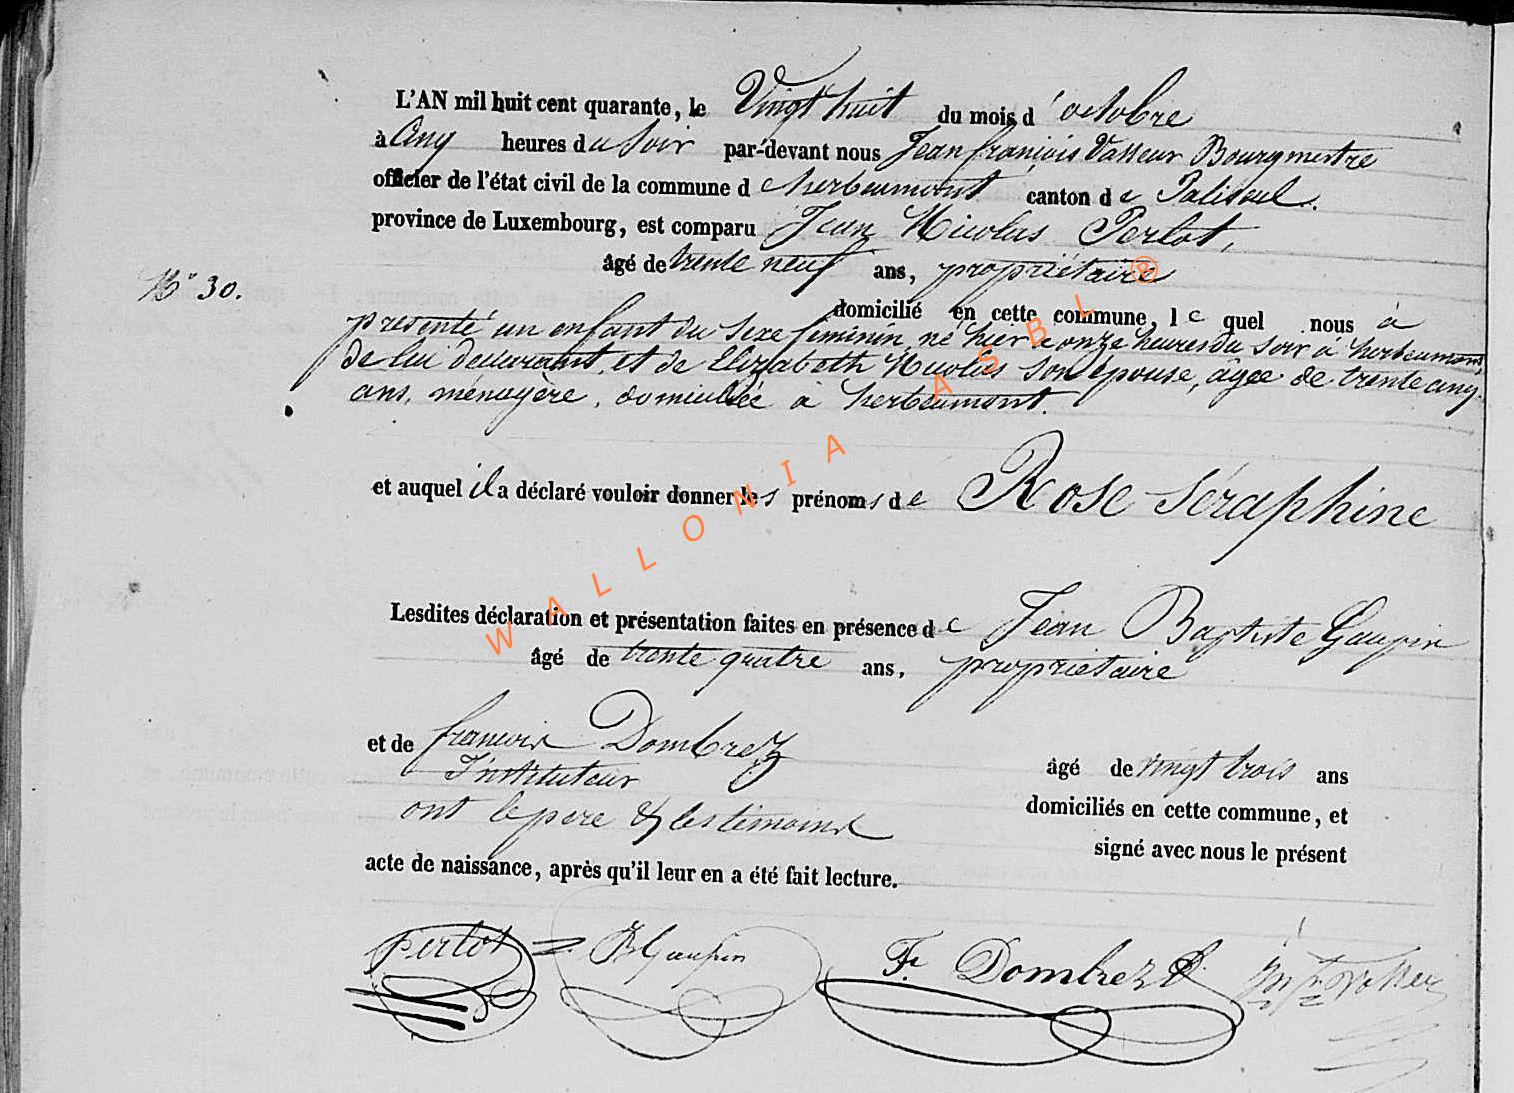 L'AN mil huit cent quarante, le Vingt huit du mois d'octobre
à cinq heures du soir par-devant nous Jean françois Vasseur Bourgmestre
officier de l'état civil de la commune de herbeumont canton de Paliseul.
province de Luxembourg, est comparu Jean Nicolas Perlot,
âgé de trente neuf ans, propriétaire
N° 30.
domicilié en cette commune, le quel nous à
présenté un enfant du sexe féminin, né hier a onze heures du soir à herbeumont,
de lui déclarant, et de Elizabeth Nicolas son épouse, agée de trente cinq
ans, ménagère, domiciliée à herbeumont.
et auquel il a déclaré vouloir donner les prénoms de Rose Séraphine
Lesdites déclaration et présentation faites en présence de Jean Baptiste Gaupin
âgé de trente quatre ans, propriétaire
et de françois Dombrez âgé de vingt trois ans
Instituteur
domiciliés en cette commune, et
ont le père & les témoins signé avec nous le présent
acte de naissance, après qu'il leur en a été fait lecture.
perlot JBGaupin Fr Dombrez
WALLONIA ASBL ®